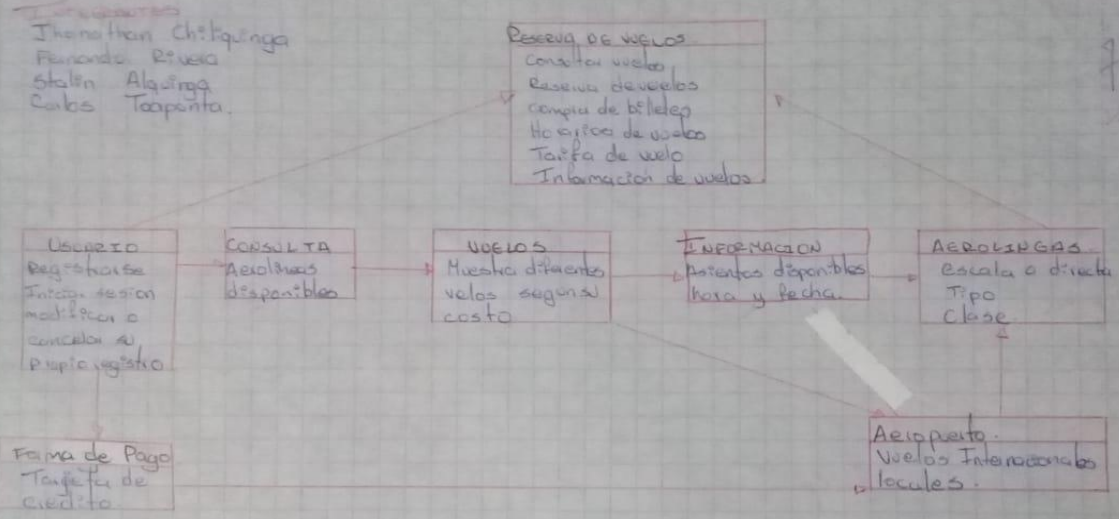 Integrantes
Jhonathan Chiliquinga
Fernando Rivera
Stalin Alquinga
Carlos Toapanta.
RESERVA DE VUELOS
Consultar vuelo
Reserva de vuelos
Compra de billetes
Horarios de vuelos
Tarifa de vuelo
Información de vuelos
USUARIO
Registrarse
Iniciar sesion
modificar o
cancelar su
propio registro
CONSULTA
Aerolineas
disponibles
VUELOS
Muestra diferentes
velos segun su
costo
INFORMACION
Asientos disponibles
hora y fecha.
AEROLINEAS
escala o directa
Tipo
Clase.
Forma de Pago
Tarjeta de
credito.
Aeropuerto.
Vuelos Internacionales
locales.